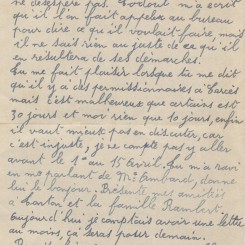 ne désespère pas. Todout m'a écrit
qu'il l'on fait appelé au bureau
pour dire ce qu'il voulait faire, mais
il ne sait rien au juste de ce qu'il
en résultera de ses démarches.
Tu me fait plaisir lorsque tu me dit
qu'il y a des permissionaires a Garcès
mais c'est malheureux que certains est
30 jours et moi rien que 10 jours, enfin
il vaut mieux pas en discuter, car
c'est injuste, je ne compte pas y aller
avant le 1er au 15 Avril. Tu m'a ravi
en me parlant de Mr Ambard, donne
lui le bonjour. Présente mes amitiés
a Marlot et la famille Rambert.
Aujourd'hui je comptais avoir une lettre
au moins, ça sera pour demain.